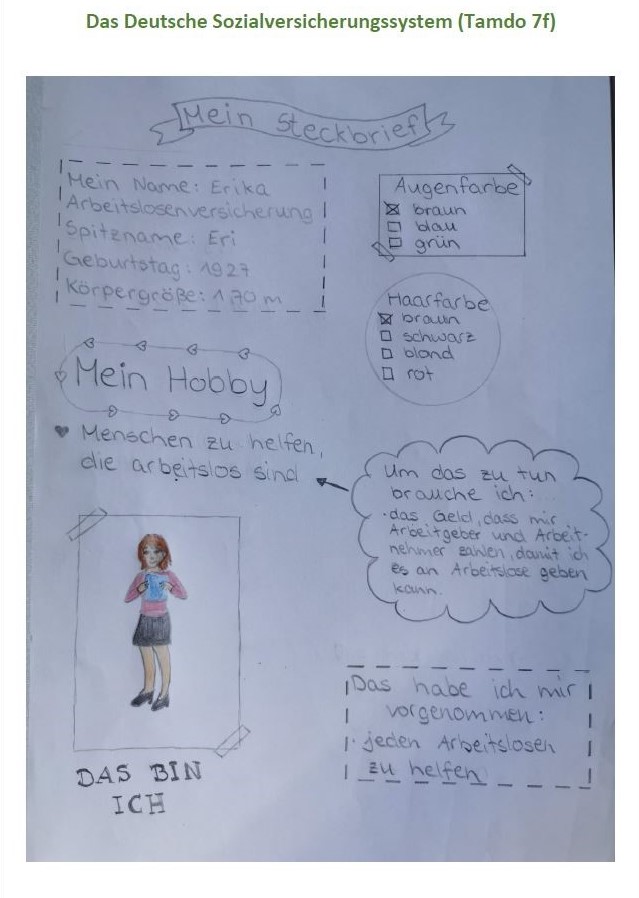 Das Deutsche Sozialversicherungssystem (Tamdo 7f)
Mein Steckbrief
Mein Name: Erika
Arbeitslosenversicherung
Spitzname: Eri
Geburtstag: 1927
Körpergröße: 1,70 m
Augenfarbe
braun
blau
grün
Haarfarbe
braun
schwarz
blond
rot
Mein Hobby
Menschen zu helfen,
die arbeitslos sind
Um das zu tun
brauche ich:
·das Geld, dass mir
Arbeitgeber und Arbeit-
nehmer zahlen, damit ich
es an Arbeitslose geben
kann.
DAS BIN
ICH
Das habe ich mir
vorgenommen:
· jeden Arbeitslosen
zu helfen